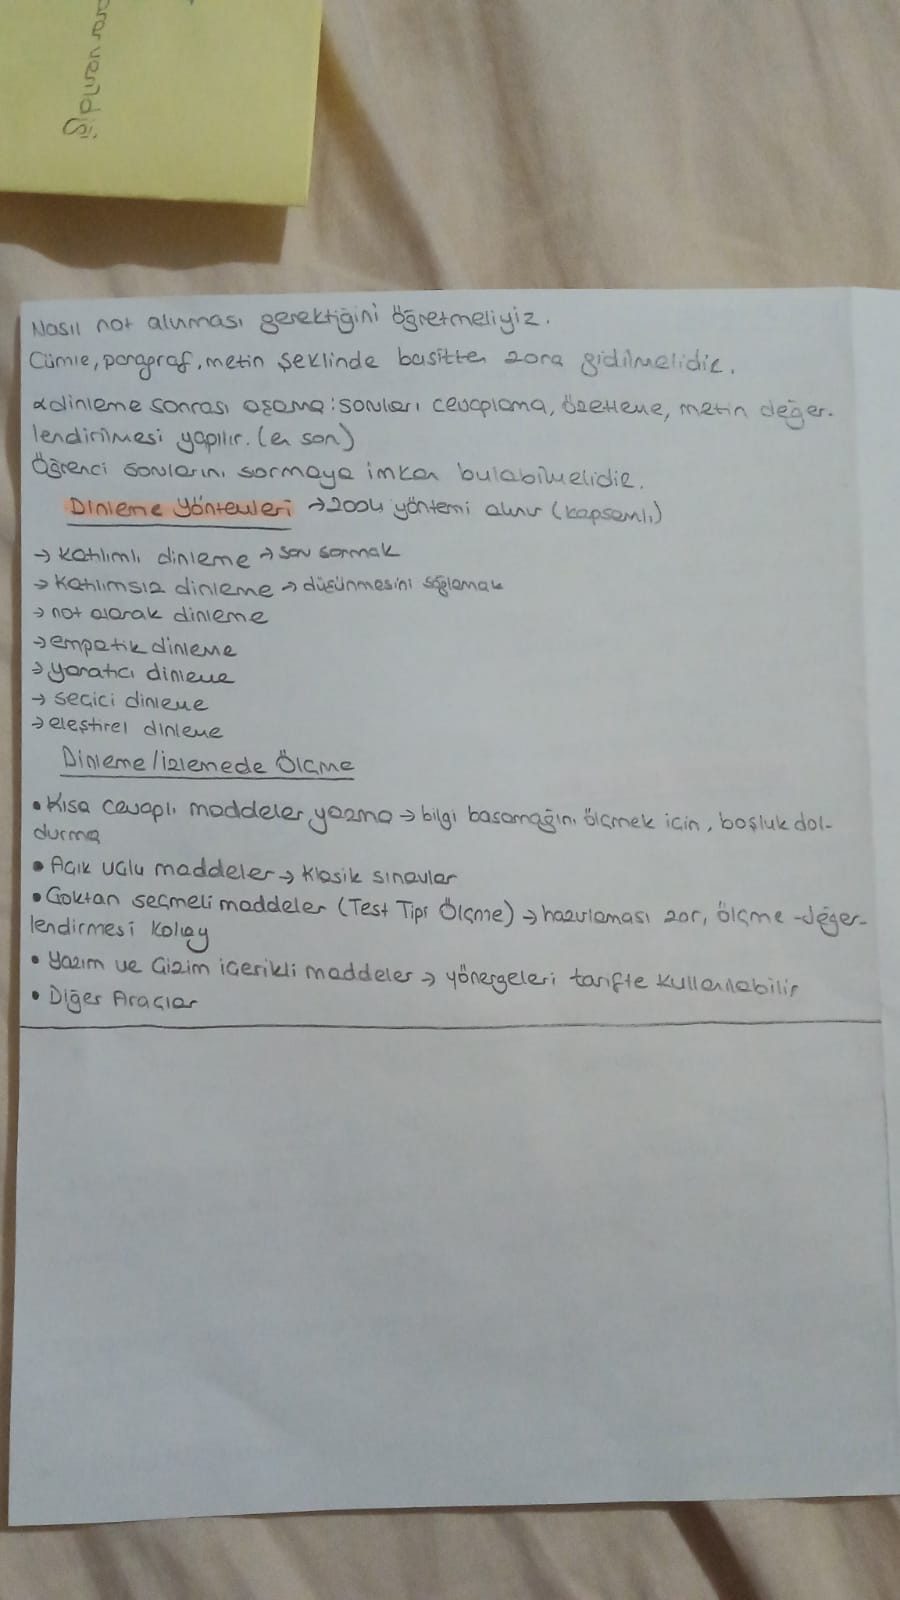 Nasıl not alınması gerektiğini öğretmeliyiz.
Cümle, paragraf, metin şeklinde basitten zora gidilmelidir.
dinleme sonrası aşama: soruları cevaplama, özetleme, metin değer-
lendirilmesi yapılır. (en son)
Öğrenci sorularını sormaya imkan bulabilmelidir.
Dinleme Yöntemleri → 2004 yöntemi alınır (kapsamlı)
→ katılımlı dinleme → soru sormak
→ Katılımsız dinleme → düşünmesini sağlamak
→ not alarak dinleme
→ empatik dinleme
→ yaratıcı dinleme
→ seçici dinleme
→ eleştirel dinleme
Dinleme/izlemede Ölçme
• Kısa cevaplı maddeler yazma → bilgi basamağını ölçmek için, boşluk dol-
durma
• Açık uçlu maddeler → Klasik sınavlar
• Çoktan seçmeli maddeler (Test Tipi Ölçme) → hazırlaması zor, ölçme-değer-
lendirmesi kolay
• Yazım ve Çizim içerikli maddeler → yönergeleri tarifte kullanılabilir
• Diğer Araçlar